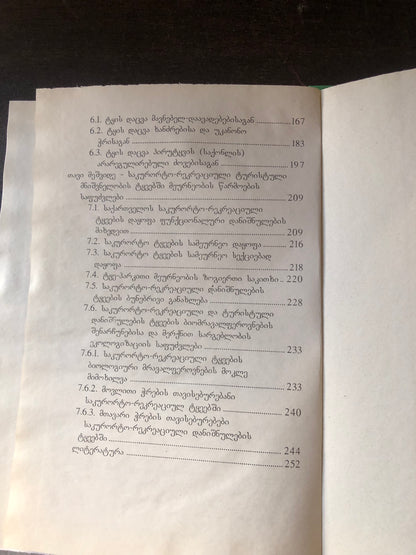 6.1. ტყის დაცვა მავნებელ-დაავადებებისაგან ..... 167
6.2. ტყის დაცვა ხანძრებისა და უკანონო
ჭრისაგან ..... 183
6.3. ტყის დაცვა პირუტყვის (საქონლის)
არარეგულირებული ძოვებისაგან ..... 197
თავი მეშვიდე - საკურორტო-რეკრეაციული ტურისტული
მნიშვნელობის ტყეებში მეურნეობის წარმოების
საფუძვლები ..... 209
7.1. საქართველოს საკურორტო-რეკრეაციული
ტყეების დაყოფა ფუნქციონალური დანიშნულების
მიხედვით ..... 209
7.2. საკურორტო ტყეების სამეურნეო დაყოფა ..... 216
7.3. საკურორტო ტყეების სამეურნეო სექციებად
დაყოფა ..... 218
7.4. ტყე-პარკითი მეურნეობის ზოგიერთი საკითხი .. 220
7.5. საკურორტო-რეკრეაციული დანიშნულების
ტყეების ბუნებრივი განახლება ..... 228
7.6. საკურორტო-რეკრეაციული და ტურისტული
დანიშნულების ტყეების ბიომრავალფეროვნების
შენარჩუნებისა და მერქნით სარგებლობის
ეკოლოგიზაციის საფუძვლები ..... 233
7.6.1. საკურორტო-რეკრეაციული ტყეების
ბიოლოგიური მრავალფეროვნების მოკლე
მიმოხილვა ..... 233
7.6.2. მოვლითი ჭრების თავისებურებანი
საკურორტო-რეკრეაციულ ტყეებში ..... 240
7.6.3. მთავარი ჭრების თავისებურებები
საკურორტო-რეკრეაციული დანიშნულების
ტყეებში ..... 244
ლიტერატურა ..... 252